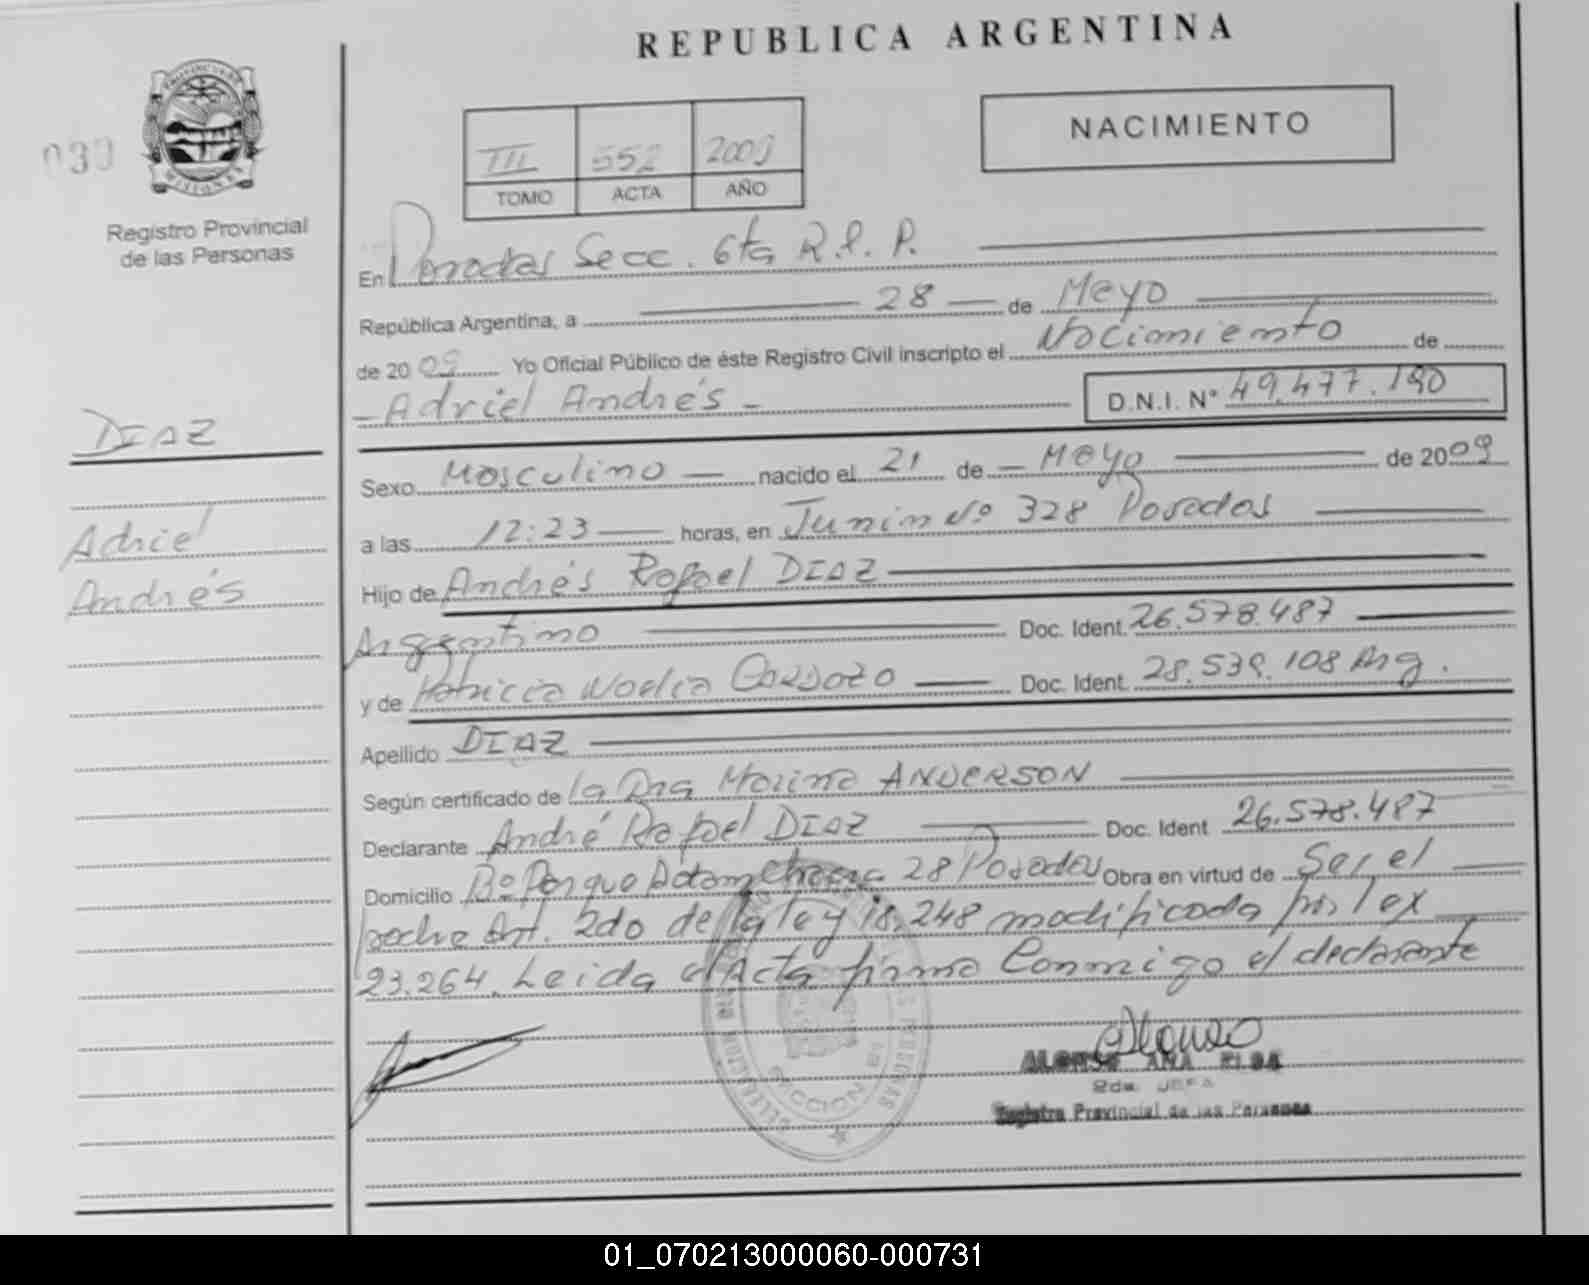 REPUBLICA ARGENTINA
PROVINCIA DE
MISIONES
030
Registro Provincial
de las Personas
III 552 2009
TOMO ACTA AÑO
NACIMIENTO
En Posadas Secc. 6ta R.P.P.
República Argentina, a 28 de Mayo
de 2009 Yo Oficial Público de éste Registro Civil inscripto el Nacimiento de
- Adriel Andrés - D.N.I. Nº 49.477.190
DIAZ
Adriel
Andrés
Sexo Masculino nacido el 21 de Mayo de 2009
a las 12:23 horas, en Junin Nº 328 Posadas
Hijo de Andrés Rafael DIAZ
Argentino Doc. Ident. 26.578.487
y de Patricia Noelia Cardozo Doc. Ident. 28.539.108 Arg.
Apellido DIAZ
Según certificado de la Dra Marina ANDERSON
Declarante André Rafael DIAZ Doc. Ident 26.578.487
Domicilio Bº Parque 28 Posadas Obra en virtud de Ser el
padre Art. 2do de la ley 18.248 modificada por lex
23.264. Leida el Acta firma Conmigo el declarante
ALONSO ANA ELSA
2da. JEFA
Registro Provincial de las Personas
SECCION
01_070213000060-000731